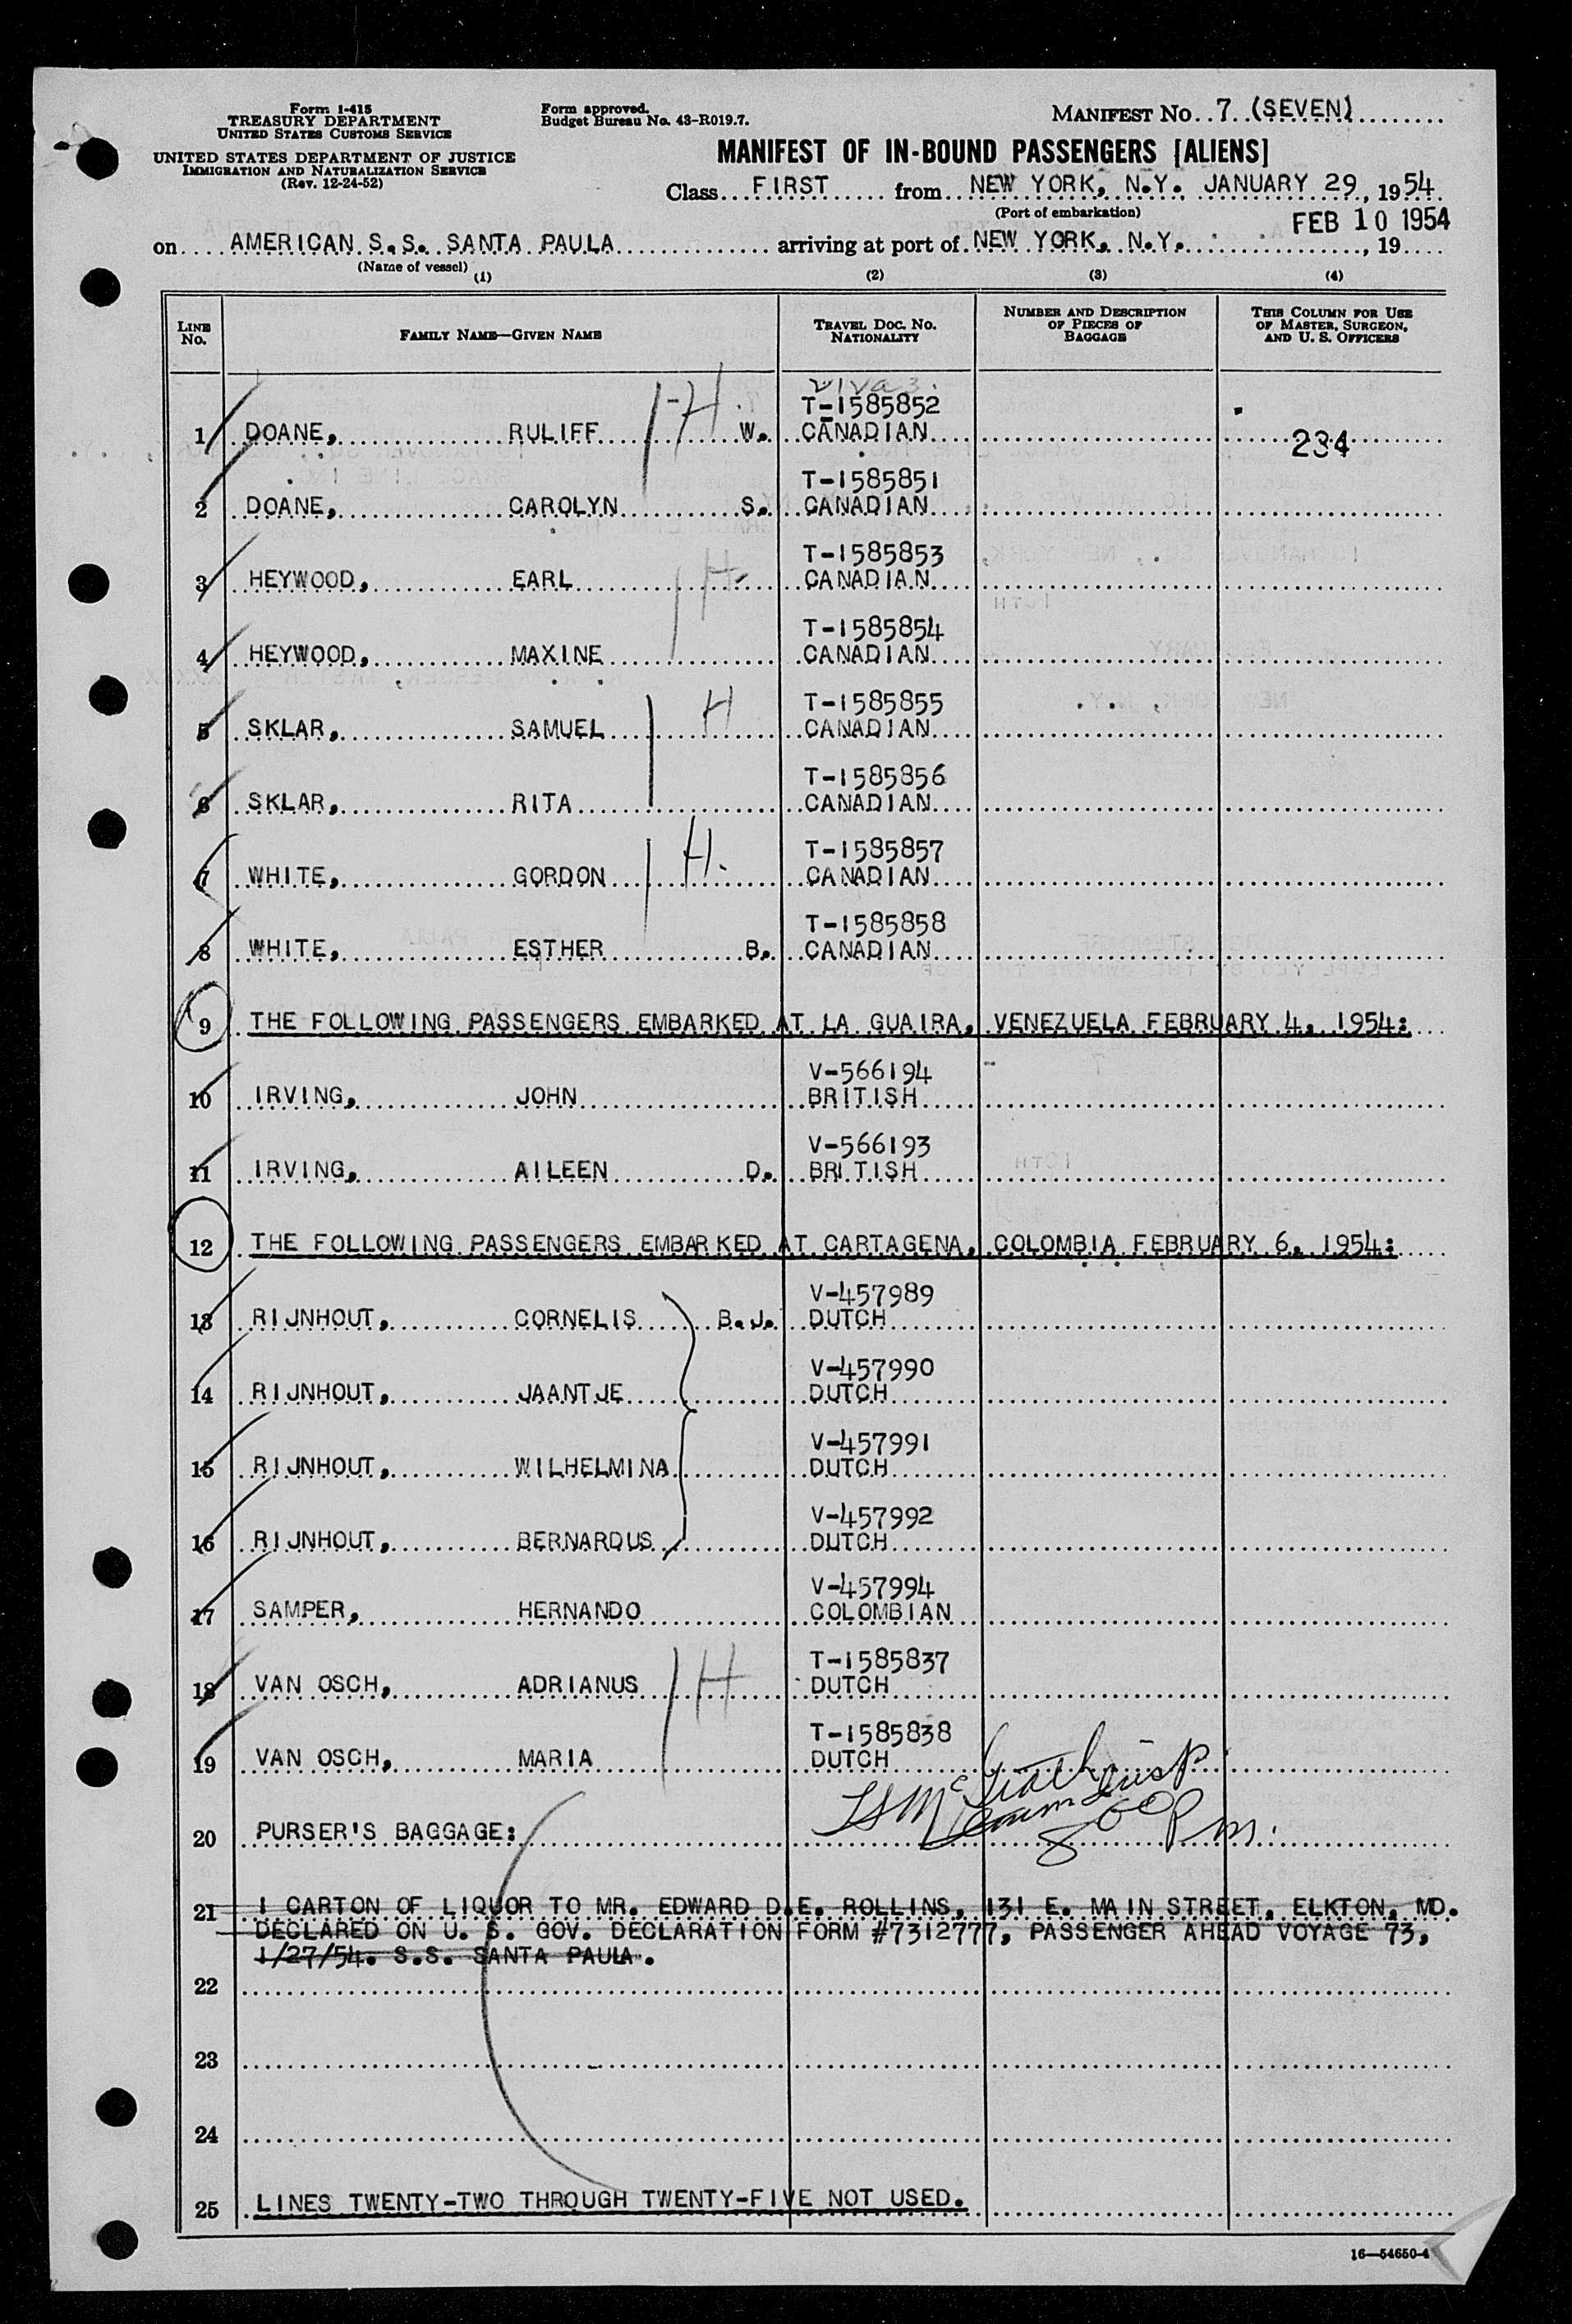 Form I-415
TREASURY DEPARTMENT
UNITED STATES CUSTOMS SERVICE
UNITED STATES DEPARTMENT OF JUSTICE
IMMIGRATION AND NATURALIZATION SERVICE
(Rev. 12-24-52)
Form approved.
Budget Bureau No. 43-R019.7.
MANIFEST NO. 7 (SEVEN)
MANIFEST OF IN-BOUND PASSENGERS [ALIENS]
Class FIRST from NEW YORK, N.Y. JANUARY 29, 1954
(Port of embarkation)
FEB 10 1954
on AMERICAN S.S. SANTA PAULA arriving at port of NEW YORK, N.Y. , 19
(Name of vessel)
(1) (2) (3) (4)
LINE NO. FAMILY NAME—GIVEN NAME TRAVEL DOC. NO. NATIONALITY NUMBER AND DESCRIPTION OF PIECES OF BAGGAGE THIS COLUMN FOR USE OF MASTER, SURGEON, AND U. S. OFFICERS
T-1585852
1 DOANE, RULIFF W. CANADIAN 234
H
T-1585851
2 DOANE, CAROLYN S. CANADIAN
T-1585853
3 HEYWOOD, EARL H CANADIAN
T-1585854
4 HEYWOOD, MAXINE CANADIAN
T-1585855
5 SKLAR, SAMUEL H CANADIAN
T-1585856
6 SKLAR, RITA CANADIAN
T-1585857
7 WHITE, GORDON H. CANADIAN
T-1585858
8 WHITE, ESTHER B. CANADIAN
9 THE FOLLOWING PASSENGERS EMBARKED AT LA GUAIRA, VENEZUELA FEBRUARY 4, 1954:
V-566194
10 IRVING, JOHN BRITISH
V-566193
11 IRVING, AILEEN D. BRITISH
12 THE FOLLOWING PASSENGERS EMBARKED AT CARTAGENA, COLOMBIA FEBRUARY 6, 1954:
V-457989
13 RIJNHOUT, CORNELIS B.J. DUTCH
V-457990
14 RIJNHOUT, JAANTJE DUTCH
V-457991
15 RIJNHOUT, WILHELMINA DUTCH
V-457992
16 RIJNHOUT, BERNARDUS DUTCH
V-457994
17 SAMPER, HERNANDO COLOMBIAN
T-1585837
18 VAN OSCH, ADRIANUS H DUTCH
T-1585838
19 VAN OSCH, MARIA DUTCH
20 PURSER'S BAGGAGE:
8 00 Pm.
21 1 CARTON OF LIQUOR TO MR. EDWARD D.E. ROLLINS, 131 E. MAIN STREET, ELKTON, MD.
DECLARED ON U. S. GOV. DECLARATION FORM #7312777, PASSENGER AHEAD VOYAGE 73,
1/27/54. S.S. SANTA PAULA.
22
23
24
25 LINES TWENTY-TWO THROUGH TWENTY-FIVE NOT USED.
16—54650-4